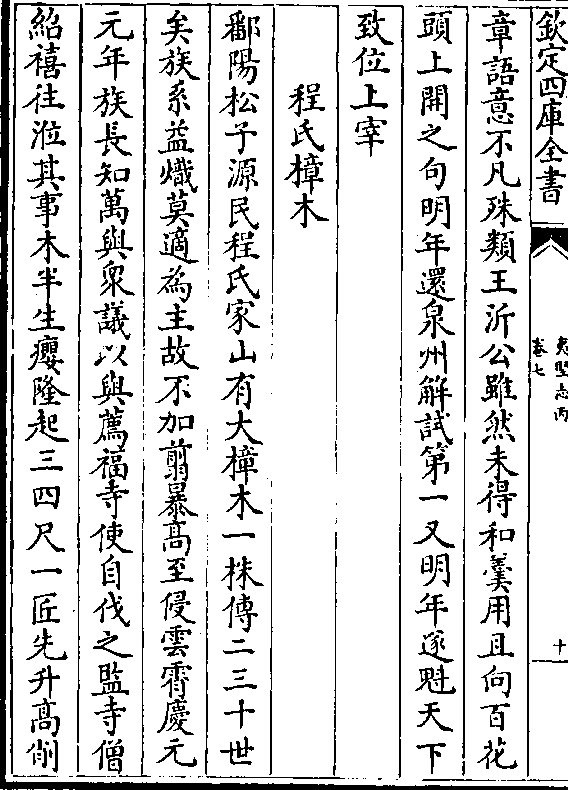 欽定四庫全書
夷堅志丙
卷七
十
章語意不凡殊類王沂公雖然未得和羹用且向百花
頭上開之句明年還泉州解試第一又明年遂魁天下
致位上宰
程氏樟木
鄱陽松子源民程氏家山有大樟木一株傳二三十世
矣族系益熾莫適為主故不加翦暴髙至侵雲霄慶元
元年族長知萬與衆議以與薦福寺使自伐之監寺僧
紹禧往涖其事木半生癭隆起三四尺一匠先升髙削